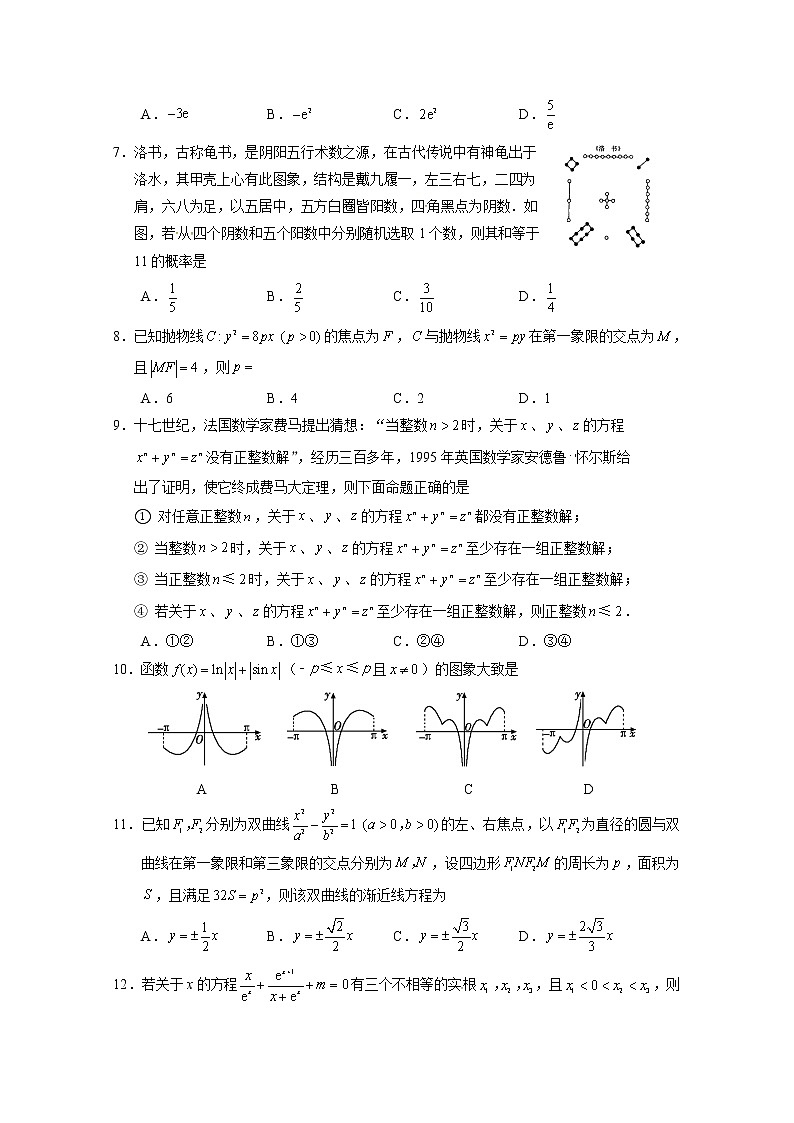 A. −3e B. −e² C. 2e² D. 5/e
7. 洛书，古称龟书，是阴阳五行术数之源，在古代传说中有神龟出于
洛水，其甲壳上心有此图象，结构是戴九履一，左三右七，二四为
肩，六八为足，以五居中，五方白圈皆阳数，四角黑点为阴数．如
图，若从四个阴数和五个阳数中分别随机选取 1 个数，则其和等于
11 的概率是
《洛 书》
A. 1/5 B. 2/5 C. 3/10 D. 1/4
8. 已知抛物线 C : y² = 8px ( p > 0) 的焦点为 F ，C 与抛物线 x² = py 在第一象限的交点为 M ，
且 |MF| = 4 ，则 p =
A. 6 B. 4 C. 2 D. 1
9. 十七世纪，法国数学家费马提出猜想：“当整数 n > 2 时，关于 x 、 y 、 z 的方程
xⁿ + yⁿ = zⁿ 没有正整数解”，经历三百多年，1995 年英国数学家安德鲁·怀尔斯给
出了证明，使它终成费马大定理，则下面命题正确的是
① 对任意正整数 n ，关于 x 、 y 、 z 的方程 xⁿ + yⁿ = zⁿ 都没有正整数解；
② 当整数 n > 2 时，关于 x 、 y 、 z 的方程 xⁿ + yⁿ = zⁿ 至少存在一组正整数解；
③ 当正整数 n ≤ 2 时，关于 x 、 y 、 z 的方程 xⁿ + yⁿ = zⁿ 至少存在一组正整数解；
④ 若关于 x 、 y 、 z 的方程 xⁿ + yⁿ = zⁿ 至少存在一组正整数解，则正整数 n ≤ 2 ．
A. ①② B. ①③ C. ②④ D. ③④
10. 函数 f (x) = ln|x| + |sin x| （﹣p ≤ x ≤ p 且 x ≠ 0 ）的图象大致是
y −π O π x y −π O π x y −π O π x y −π O π x
A B C D
11. 已知 F₁ , F₂ 分别为双曲线 x²/a² − y²/b² = 1 (a > 0, b > 0) 的左、右焦点，以 F₁F₂ 为直径的圆与双
曲线在第一象限和第三象限的交点分别为 M , N ，设四边形 F₁NF₂M 的周长为 p ，面积为
S ，且满足 32S = p² ，则该双曲线的渐近线方程为
A. y = ± 1/2 x B. y = ± √2/2 x C. y = ± √3/2 x D. y = ± 2√3/3 x
12. 若关于 x 的方程 x/eˣ + eˣ⁺¹/(x + eˣ) + m = 0 有三个不相等的实根 x₁ , x₂ , x₃ ，且 x₁ < 0 < x₂ < x₃ ，则